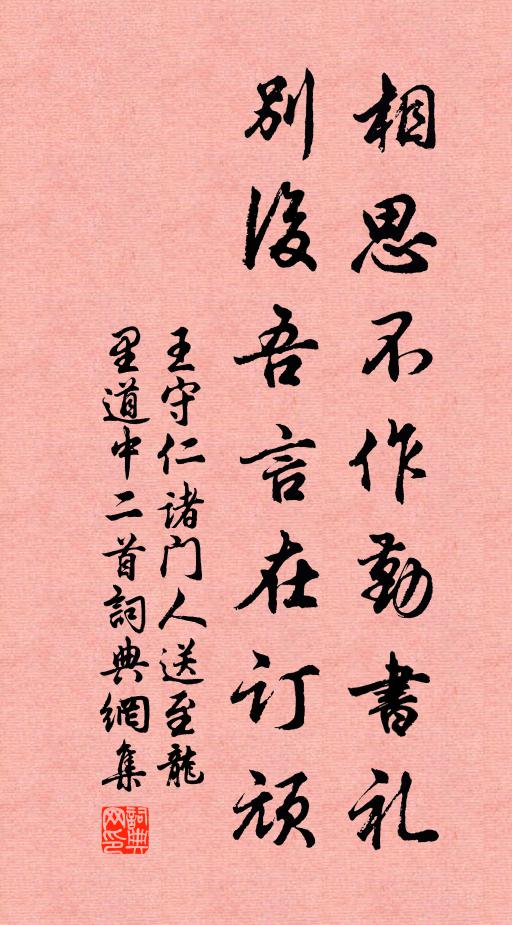 相思不作勤書礼
別後吾言在订頑
王守仁诸门人送至龍
里道中二首詞典網集
詞典网印